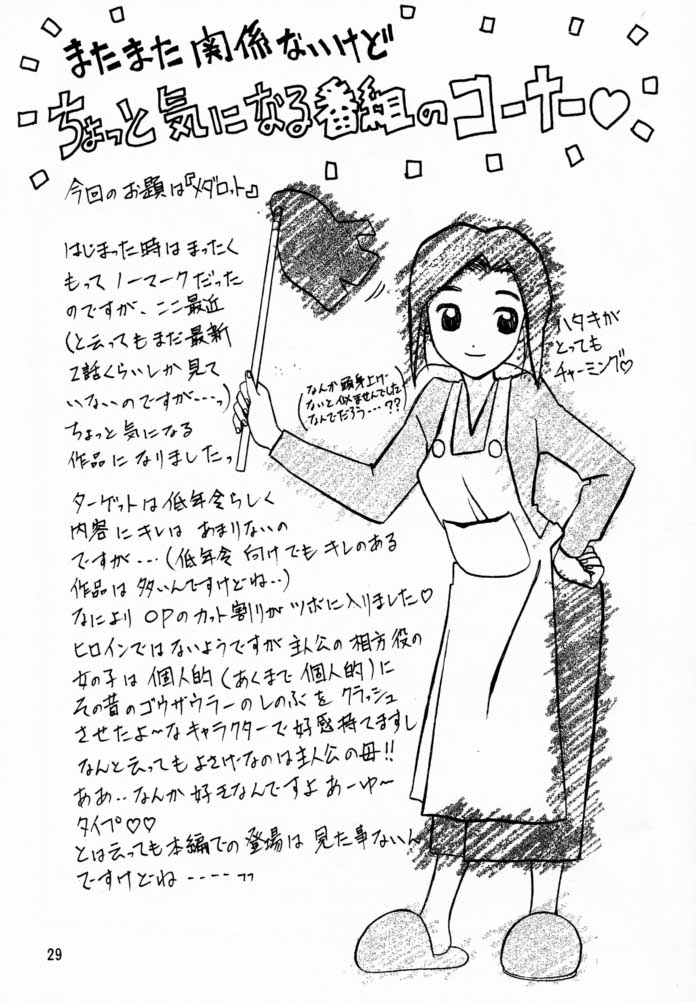 またまた関係ないけど
ちょっと気になる番組のコーナー♡
今回のお題は『メダロット』
はじまった時はまったく
もってノーマークだった
のですが、ここ最近
(と云ってもまだ最新
2話くらいしか見て
いないのですが---っ)
ちょっと気になる
作品になりましたっ
ターゲットは低年令らしく
内容にキレはあまりないの
ですが---(低年令向けでもキレのある
作品は多いんですけどね‥)
なによりOPのカット割りがツボに入りました♡
ヒロインではないようですが主人公の相方役の
女の子は個人的(あくまで個人的)に
その昔のゴウザウラーのしのぶをクラッシュ
させたよ〜なキャラクターで好感持てますし
なんと云ってもよさげなのは主人公の母!!
ああ‥なんか好きなんですよあーゆ〜
タイプ♡♡
とは云っても本編での登場は見た事ないん
ですけどね----っっ
(なんか頭身上げ
ないと似ませんでした
なんでだろう---??)
ハタキが
とっても
チャーミング♡
29